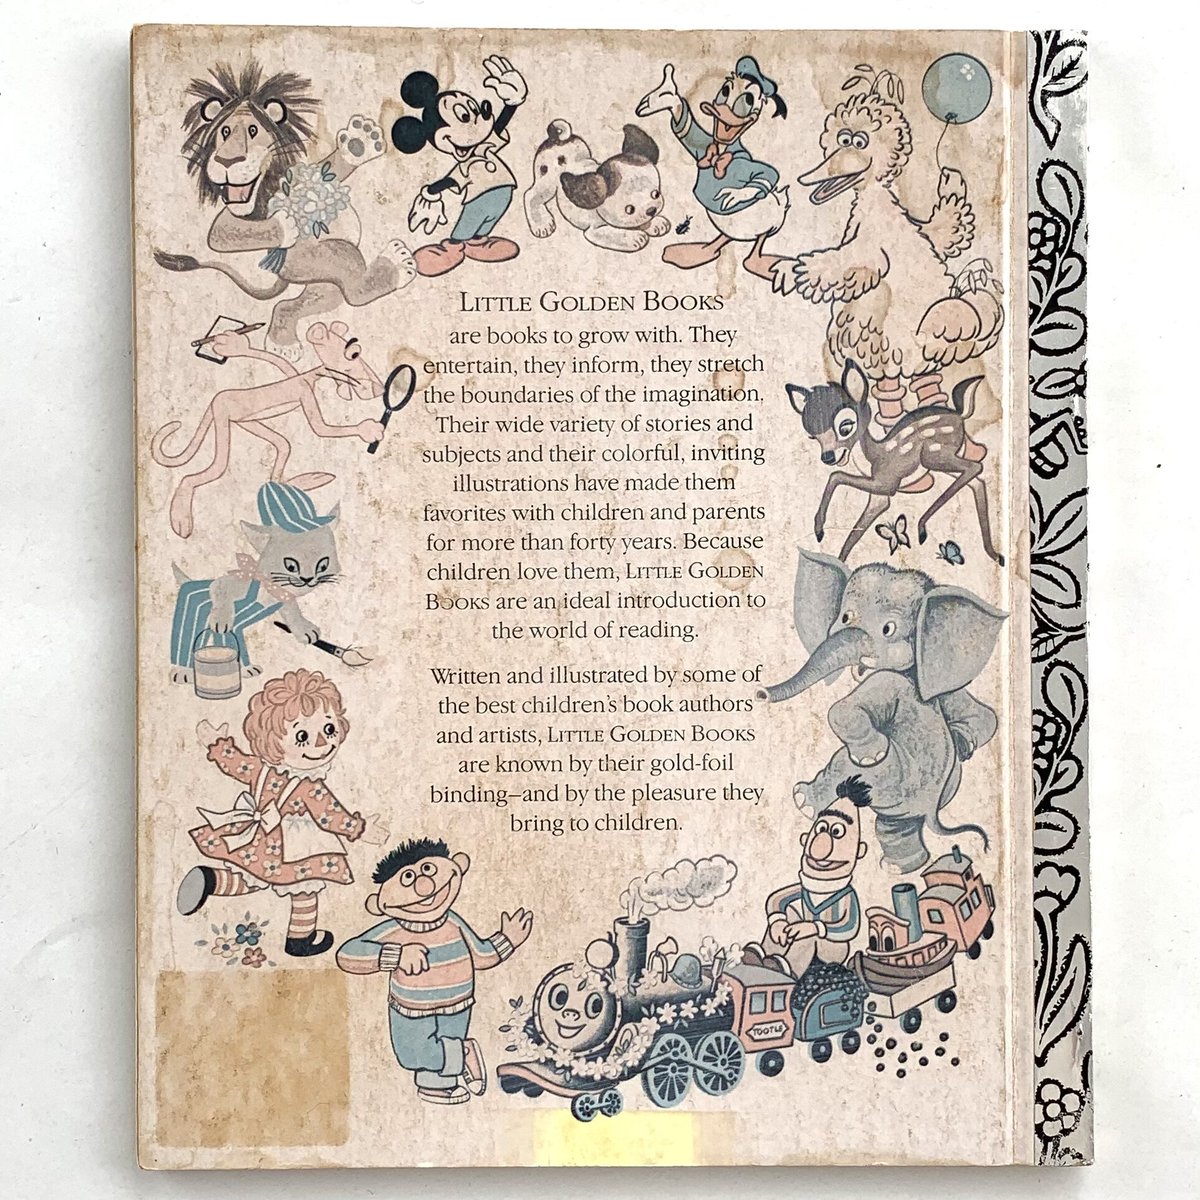 LITTLE GOLDEN BOOKS
are books to grow with. They
entertain, they inform, they stretch
the boundaries of the imagination.
Their wide variety of stories and
subjects and their colorful, inviting
illustrations have made them
favorites with children and parents
for more than forty years. Because
children love them, LITTLE GOLDEN
BOOKS are an ideal introduction to
the world of reading.
Written and illustrated by some of
the best children's book authors
and artists, LITTLE GOLDEN BOOKS
are known by their gold-foil
binding—and by the pleasure they
bring to children.
TOOTLE